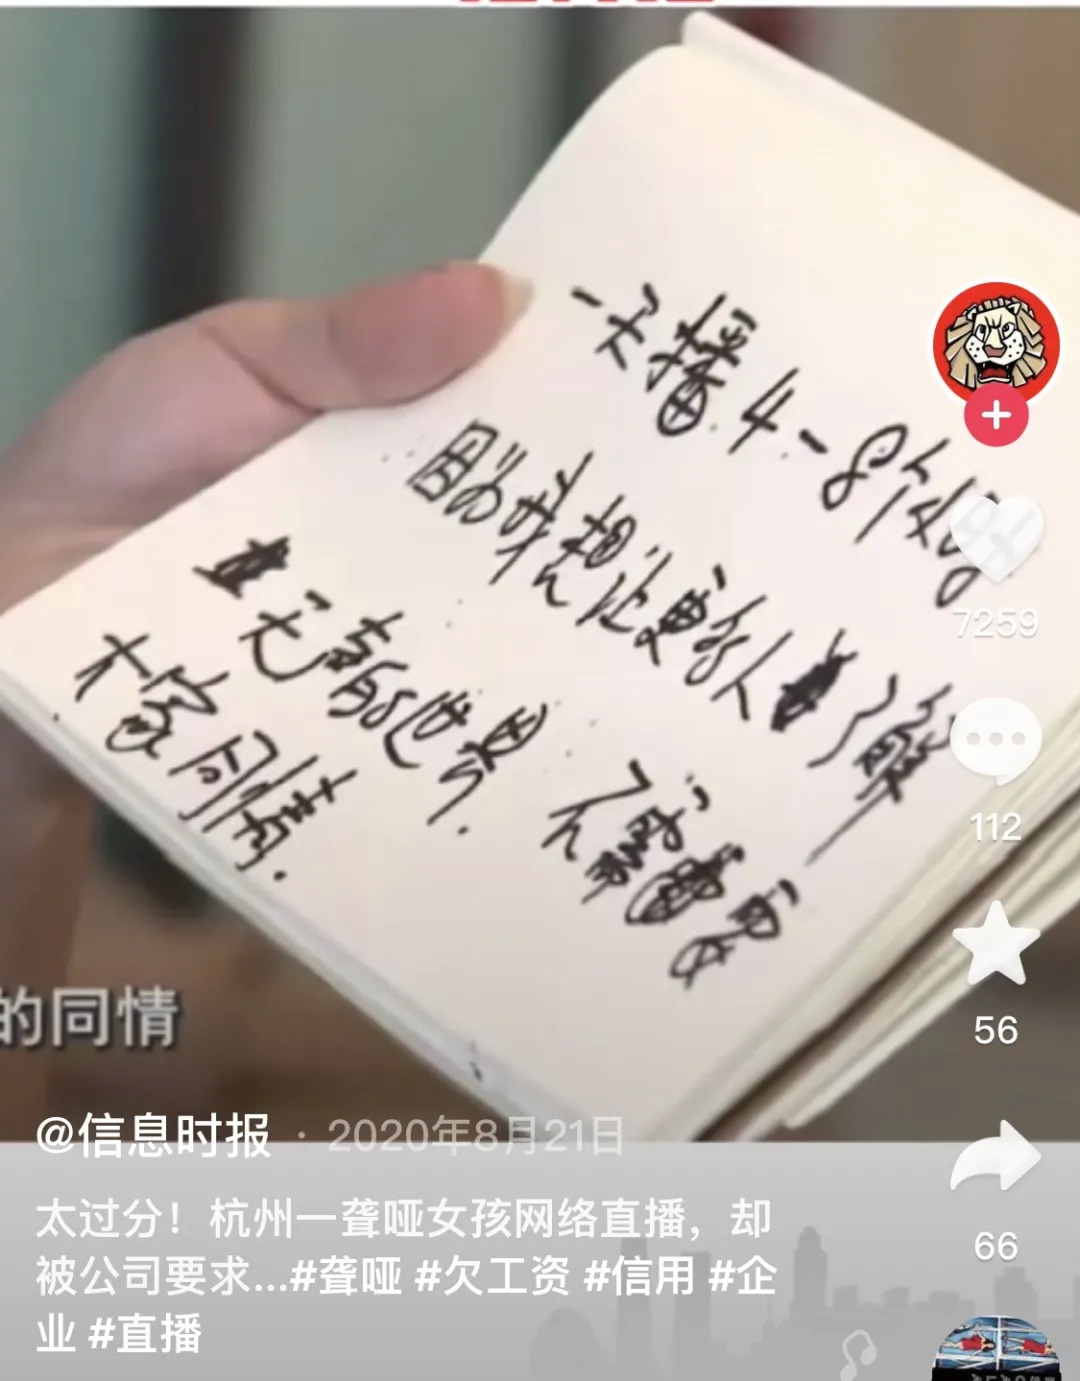 一天播4-8个小时
因为我想让更多的人了解
无声世界 不需要
大家同情.
7259
112
的同情
56
@信息时报 · 2020年8月21日
太过分！杭州一聋哑女孩网络直播，却
被公司要求...#聋哑 #欠工资 #信用 #企
业 #直播
66